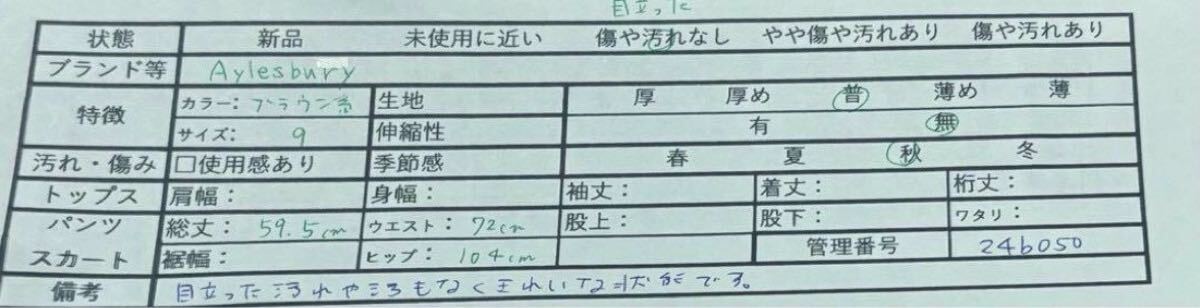 目立った
状態 新品 未使用に近い 傷や汚れなし やや傷や汚れあり 傷や汚れあり
ブランド等 Aylesbury
特徴 カラー: ブラウン系 生地 厚 厚め 普 薄め 薄
サイズ: 9 伸縮性 有 無
汚れ・傷み □使用感あり 季節感 春 夏 秋 冬
トップス 肩幅: 身幅: 袖丈: 着丈: 桁丈:
パンツ 総丈: 59.5cm ウエスト: 72cm 股上: 股下: ワタリ:
スカート 裾幅: ヒップ: 104cm 管理番号 246050
備考 目立った汚れや汚もなくきれいな状態です。